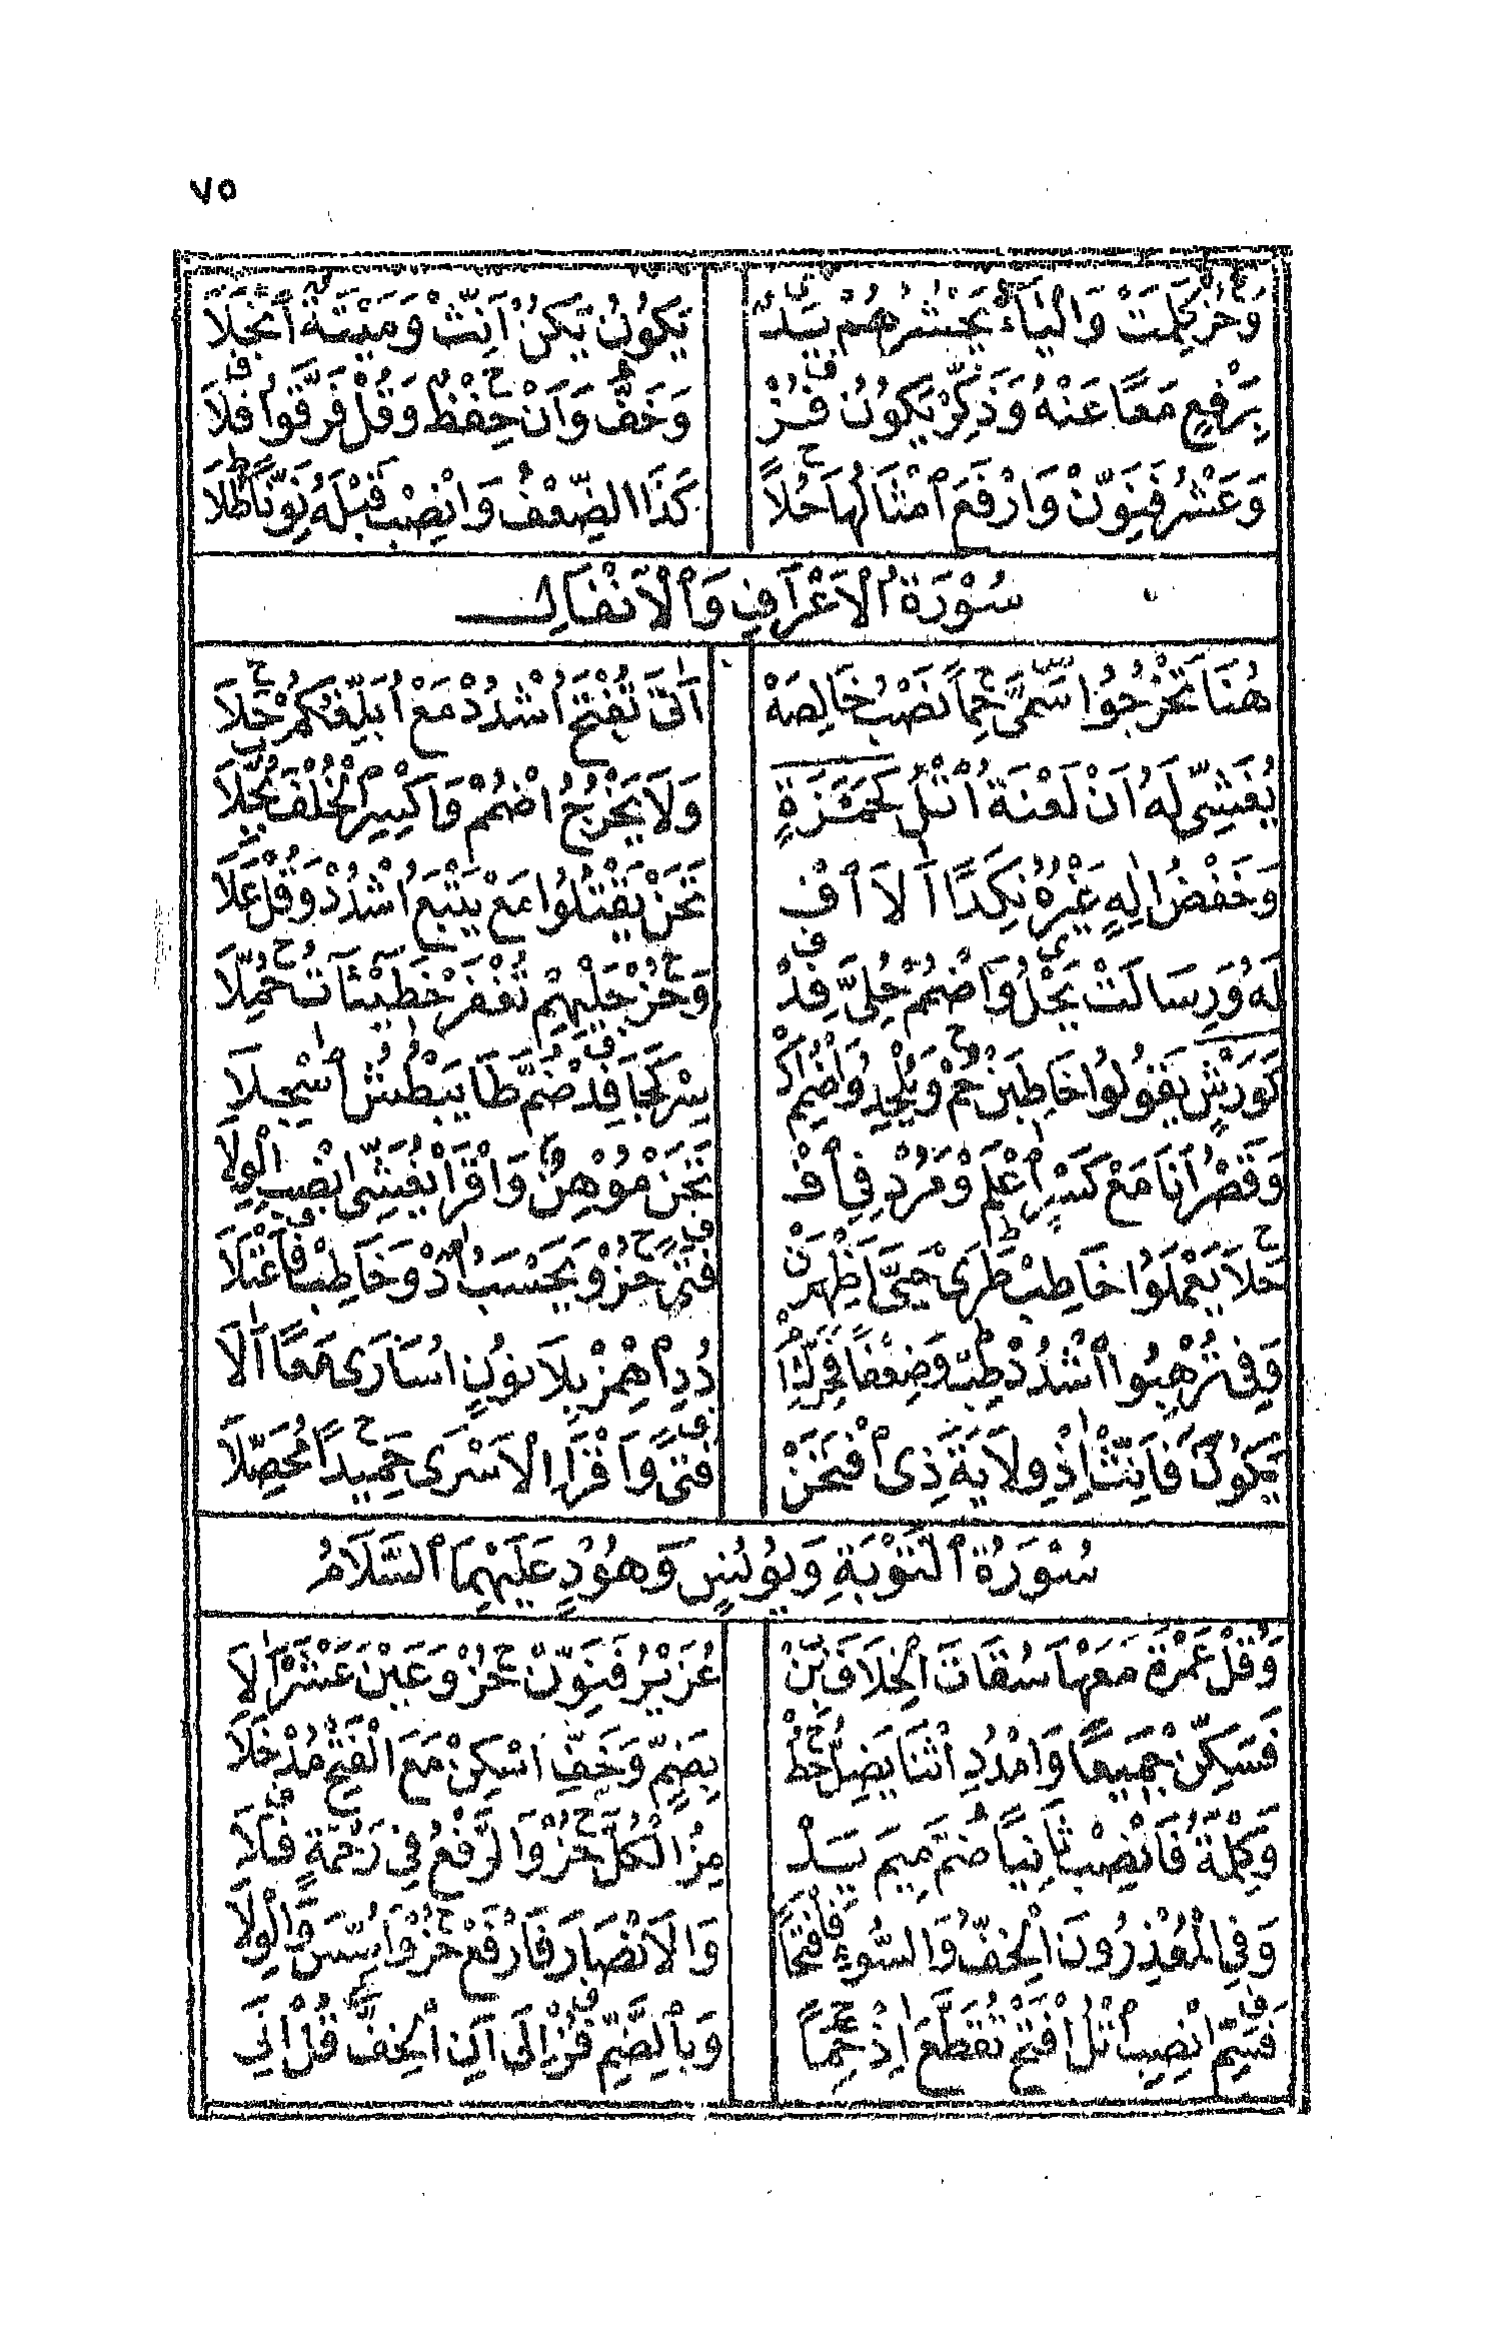 ٧٥
وَحُزْ كَلِمَتْ وَالْيَاءُ يَحْشُرُهُمْ يَدٌ يَكُونُ يَكُنْ أَنِّثْ وَمَيْتَةُ انْجَلَا
بِرَفْعٍ مَعًا عَنْهُ وَذَكِّرْ يَكُونُ فُزْ وَخَفُّ وَأَنْ حِفْظٌ وَقُلْ فَرَّقُوا فُلَا
وَعَشْرُ فَنَوِّنْ وَارْفَعَ امْثَالُهَا حُلًا كَذَا الضِّعْفُ وَانْصِبْ قَبْلَهُ نَوِّنًا طُلَا
سُوْرَةُ الْأَعْرَافِ وَالْأَنْفَالِ
هُنَا تَخْرُجُوا سَمَّى حِمًا نَصْبُ خَالِصَهْ أَتَى تُفْتَحُ اشْدُدْ مَعْ أُبَلِّغُكُمْ حَلَا
يُغَشِّي لَهُ أَنْ لَعْنَةُ اتْلُ كَحَمْزَةٍ وَلَا يَخْرُجُ اضْمُمْ وَاكْسِرِ الْخُلْفَ بُجِّلَا
وَخَفْضُ إِلَهٍ غَيْرُهُ نَكِدًا أَلَا افْ تَحَنْ يَقْتُلُوا مَعْ يَتْبَعُ اشْدُدْ وَقُلْ عَلَا
لَهُ وَرِسَالَتْ يَحْلُ وَاضْمُمْ حُلِيِّ فِدْ وَحُزْ حَلْيِهِمْ تُغْفَرْ خَطِيئَاتُ حُمِّلَا
كَوَرْشٍ يَقُولُوا خَاطِبَنْ حُمْ وَيُلْحِدُو اضْمُمِ اكْسِرْ كَحَا فِدْ ضُمَّ طَا يَبْطِشُ اسْجِلَا
وَقَصْرُ أَنَا مَعْ كَسْرِ اعْلَمْ وَمُرْدِفِي افْتَحَنْ مُوْهِنٌ وَاقْرَأْ يُغَشِّي انْصِبِ الْوِلَا
حَلَا يَعْمَلُوا خَاطِبْ طَرَى حَيَّ أَظْهِرَنْ فَتًى حُزْ وَيَحْسَبْ أُدْ وَخَاطِبْ فَاعْتَلَا
وَفِي تُرْهِبُوا اشْدُدْ طِبْ وَضِعْفًا فَحَرِّكِ امْدُدِ اهْمِزْ بِلَا نُونٍ أُسَارَى مَعًا أَلَا
يَكُونَ فَأَنِّثْ إِذْ وِلَايَةَ ذِي افْتَحَنْ فَتًى وَاقْرَإِ الْأَسْرَى حَمِيدًا مُحَصِّلَا
سُوْرَةُ التَّوْبَةِ وَيُونُسٍ وَهُوْدٍ عَلَيْهِمَا السَّلَامُ
وَقُلْ عَمْرَةٌ مَعْهَا سُقَاةَ الْخِلَافَ بِنْ عُزَيْرُ فَنَوِّنْ حُزْ وَعَيْنَ عَشَرْ أَلَا
فَسَكِّنْ جَمِيعًا وَامْدُدِ اثْنَا يَضِلُّ حُطْ بِضَمٍّ وَخِفَّ اسْكِنْ مَعَ الْفَتْحِ مُدْخَلَا
وَكِلْمَةُ فَانْصِبْ ثَانِيًا ضُمَّ مِيمَ يَلْ مِزُ الْكُلَّ حُزْ وَالرَّفْعُ فِي رَحْمَةٍ فُلَا
وَفِي الْمُعْذِرُونَ الْخِفُّ وَالسُّوءِ فَافْتَحًا وَالَانْصَارُ فَارْفَعْ حُزْ وَأُسِّسَ وَالْوِلَا
فَسَمِّ انْصِبِ اتْلُ افْتَحْ تُقَطَّعَ إِذْ حِمًا وَبِالضَّمِّ فُزْ إِلَى أَنِ الْخِفُّ قُلْ إِلَى